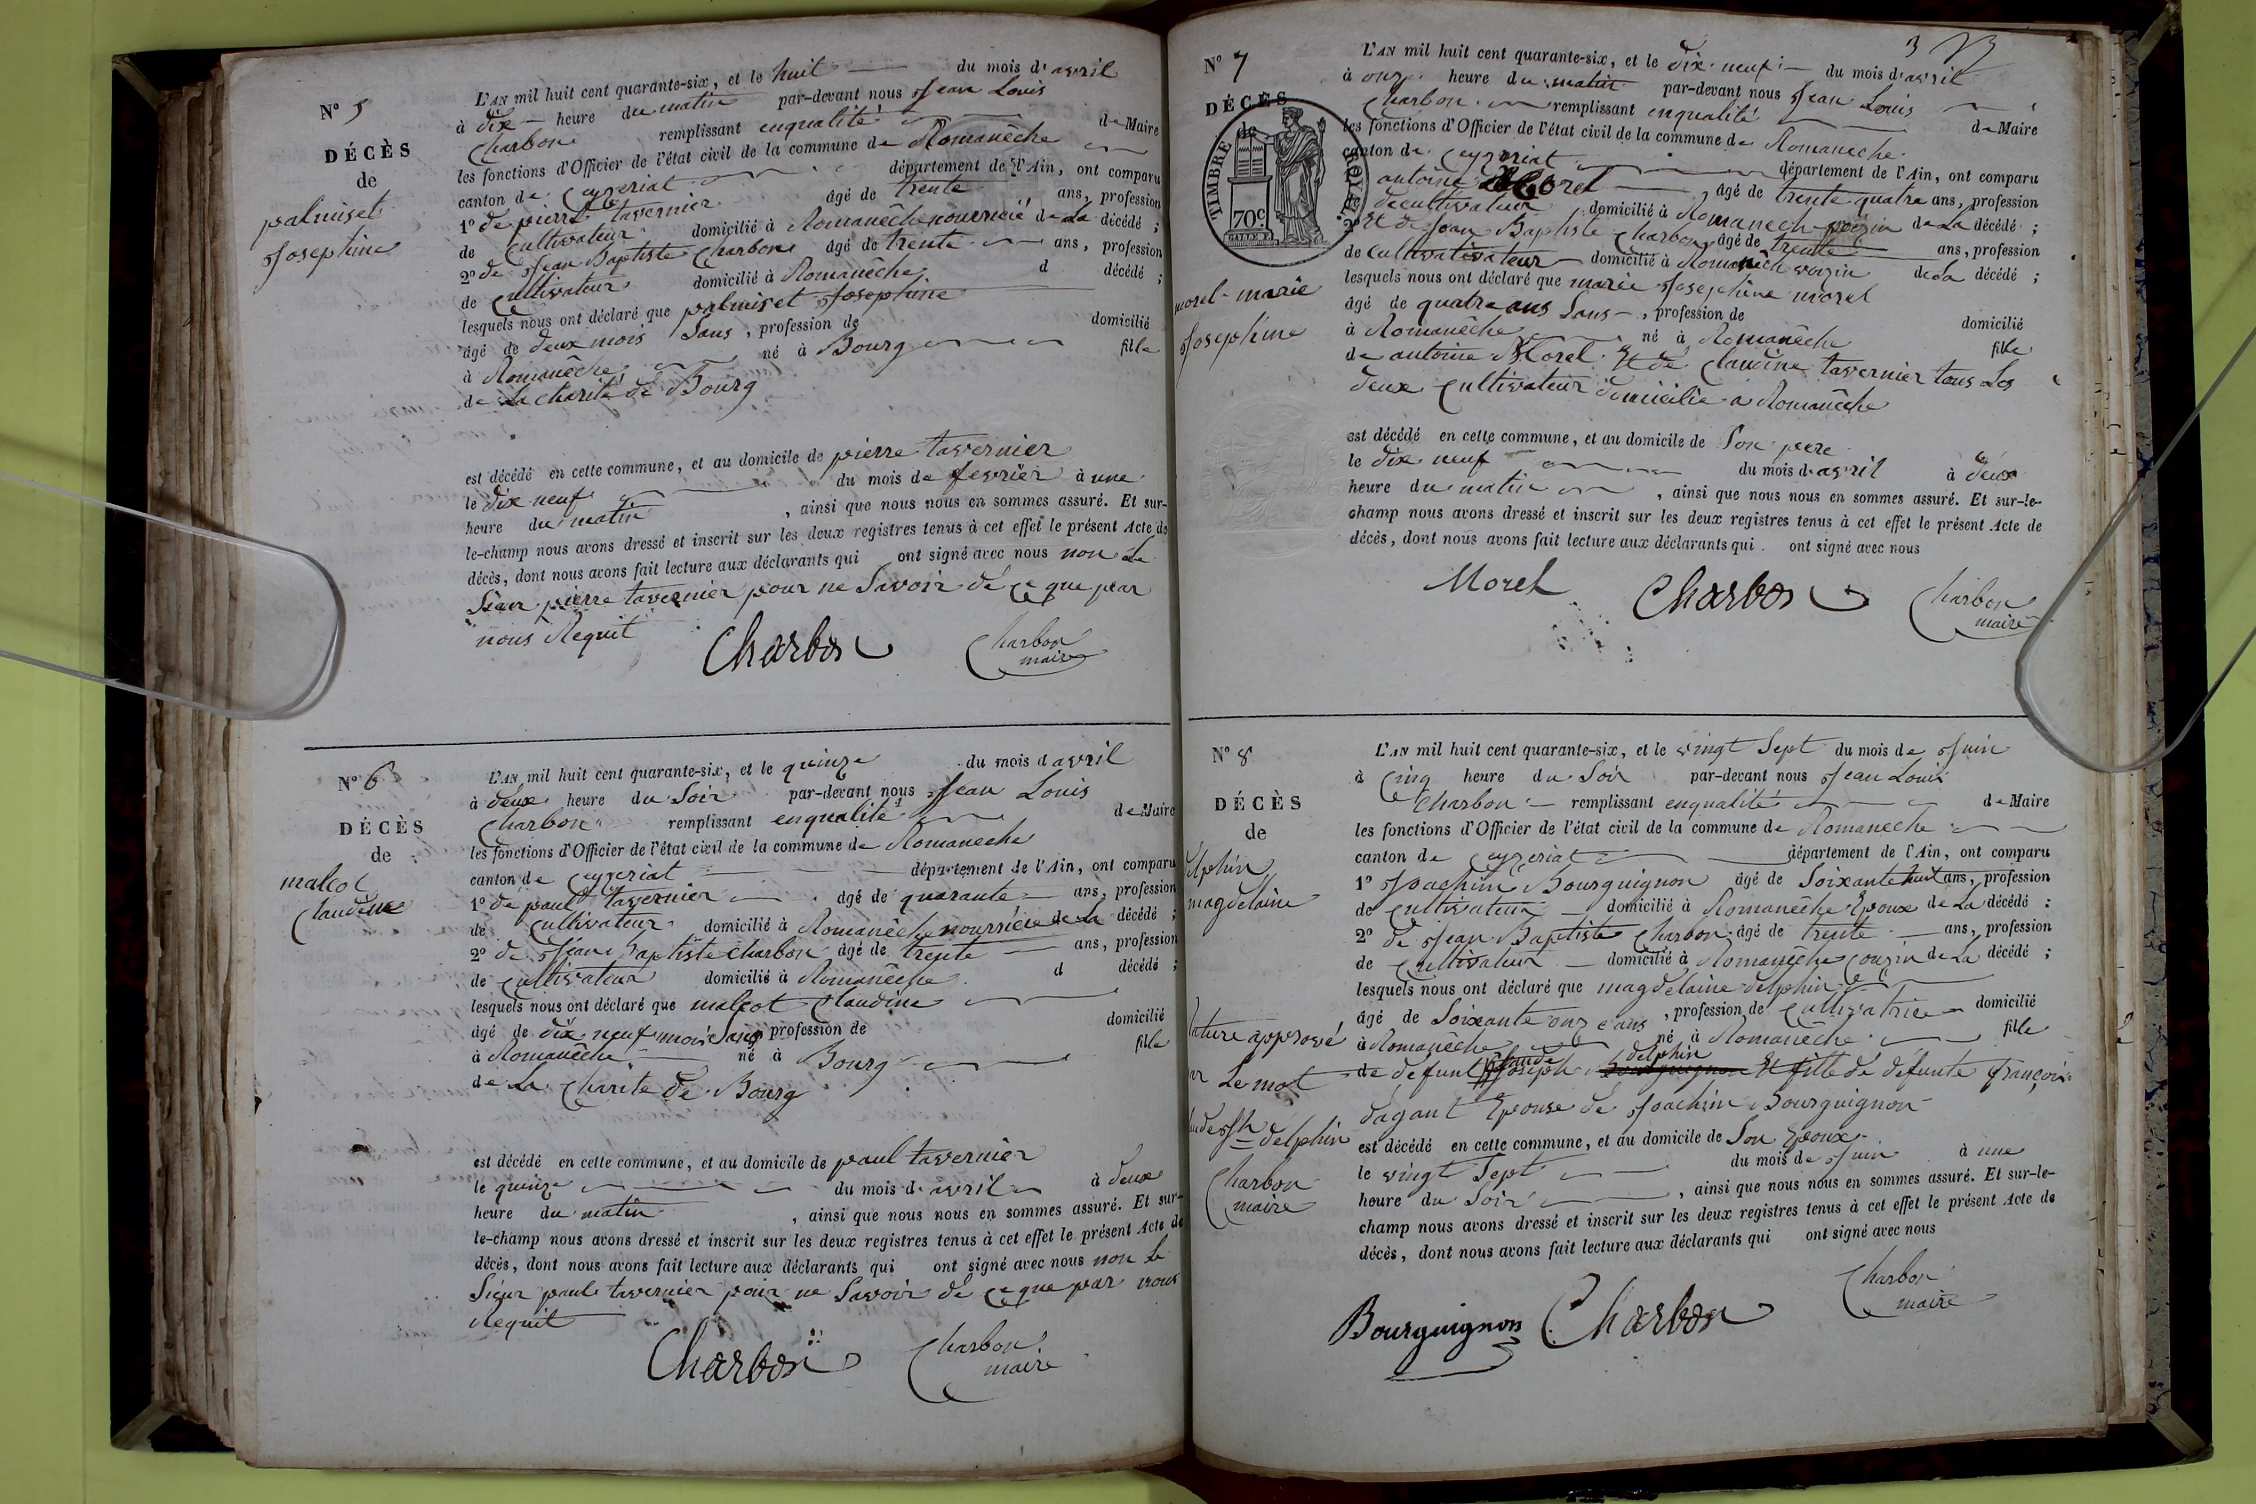 N° 5
DÉCÈS
de
palmiset
Josephine
L'AN mil huit cent quarante-six, et le huit du mois d'avril
à dix heure du matin par-devant nous Jean Louis
Charbon remplissant enqualité de Maire
les fonctions d'Officier de l'état civil de la commune de Romanêche
canton de Ceyzeriat département de l'Ain, ont comparu
1° de pierre tavernier âgé de trente ans, profession
de Cultivateur domicilié à Romanêche nourricié de La décédé ;
2° de Jean Baptiste Charbon âgé de trente ans, profession
de Cultivateur domicilié à Romanêche d décédé ;
lesquels nous ont déclaré que palmiset Josephine
âgé de deux mois Sans , profession de domicilié
à Romanêche né à Bourg fille
de La charité de Bourg
est décédé en cette commune, et au domicile de pierre tavernier
le dix neuf du mois de fevrier à une
heure du matin , ainsi que nous nous en sommes assuré. Et sur-
le-champ nous avons dressé et inscrit sur les deux registres tenus à cet effet le présent Acte de
décès, dont nous avons fait lecture aux déclarants qui ont signé avec nous non Le
Sieur pierre tavernier pour ne Savoir dé ce que par
nous Requit
Charbon Charbon
maire
N° 6
DÉCÈS
de
malcot
Claudine
L'AN mil huit cent quarante-six, et le quinze du mois d avril
à deux heure du Soir par-devant nous Jean Louis
Charbon remplissant enqualité de Maire
les fonctions d'Officier de l'état civil de la commune de Romaneche
canton de Ceyzeriat département de l'Ain, ont comparu
1° de paul tavernier âgé de quarante ans, profession
de Cultivateur domicilié à Romanêche nourriciée de La décédé ;
2° de Jean Baptiste Charbon âgé de trente ans, profession
de Cultivateur domicilié à Romanêche d décédé ;
lesquels nous ont déclaré que malcot Claudine
âgé de dix neuf mois Sans profession de domicilié
à Romanêche né à Bourg fille
de La Charité de Bourg
est décédé en cette commune, et au domicile de paul tavernier
le quinze du mois d avril à deux
heure du matin , ainsi que nous nous en sommes assuré. Et sur-
le-champ nous avons dressé et inscrit sur les deux registres tenus à cet effet le présent Acte de
décès, dont nous avons fait lecture aux déclarants qui ont signé avec nous non Le
Sieur paul tavernier pour ne Savoir de ce que par nous
Requit
Charbon Charbon
maire
3
N° 7
DÉCÈS
de
TIMBRE ROYAL
70c
morel marie
Josephine
L'AN mil huit cent quarante-six, et le dix neuf du mois d'avril
à onze heure du matin par-devant nous Jean Louis
Charbon remplissant enqualité de Maire
les fonctions d'Officier de l'état civil de la commune de Romaneche
canton de Ceyzeriat département de l'Ain, ont comparu
antoine Morel âgé de trente quatre ans, profession
de cultivateur domicilié à Romaneche de La décédé ;
2° Et de Jean Baptiste Charbon âgé de trente ans, profession
de Cultivativateur domicilié à Romanêche voizin de La décédé ;
lesquels nous ont déclaré que marie Josephine morel
âgé de quatre ans Sans , profession de domicilié
à Romanêche né à Romanêche fille
de antoine Morel Et de Claudine tavernier tous Les
deux Cultivateur domicilié a Romanêche
est décédé en cette commune, et au domicile de Son pere
le dix neuf du mois d avril à deux
heure du matin , ainsi que nous nous en sommes assuré. Et sur-le-
champ nous avons dressé et inscrit sur les deux registres tenus à cet effet le présent Acte de
décès, dont nous avons fait lecture aux déclarants qui ont signé avec nous
Morel Charbon Charbon
maire
N° 8
DÉCÈS
de
delphin
magdelaine
L'AN mil huit cent quarante-six, et le vingt Sept du mois de Juin
à Cinq heure du Soir par-devant nous Jean Louis
Charbon remplissant enqualité de Maire
les fonctions d'Officier de l'état civil de la commune de Romanêche
canton de Ceyzeriat département de l'Ain, ont comparu
1° Joachim Bourguignon âgé de Soixante huit ans, profession
de Cultivateur domicilié à Romanêche Epoux de La décédé ;
2° de Jean Baptiste Charbon âgé de trente ans, profession
de Cultivateur domicilié à Romanêche Couzin de La décédé ;
lesquels nous ont déclaré que magdelaine delphin
âgé de Soixante onze ans , profession de Cultivatrice domicilié
à Romaneche né à Romanêche fille
de defunt Claude Joseph delphin Et fille de défunte françoise
dagant Epouse de Joachim Bourguignon
est décédé en cette commune, et au domicile de Son Epoux
le vingt Sept du mois de Juin à une
heure du Soir , ainsi que nous nous en sommes assuré. Et sur-le-
champ nous avons dressé et inscrit sur les deux registres tenus à cet effet le présent Acte de
décès, dont nous avons fait lecture aux déclarants qui ont signé avec nous
rature approuvé
Le mot
delphin
Charbon
maire
Bourguignon Charbon Charbon
maire